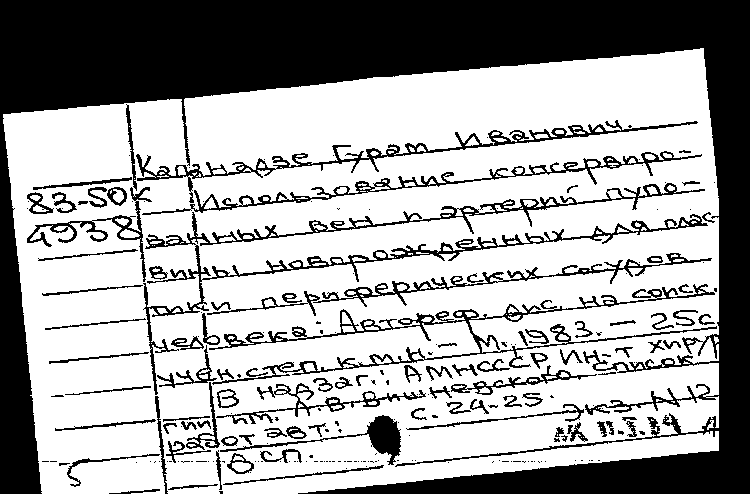 Капанадзе, Гурам Иванович.
83-50К Использование консервиро-
4938 ванных вен и артерий пупо-
вины новорожденных для плас-
тики периферических сосудов
человека: Автореф. дис. на соиск.
учен. степ. к.м.н. - М., 1983. - 25с
В надзаг.: АМНСССР Ин-т хирур
гии им. А.В. Вишневского. Список
работ авт.: с. 24-25. Экз. N 12
5 В сп.